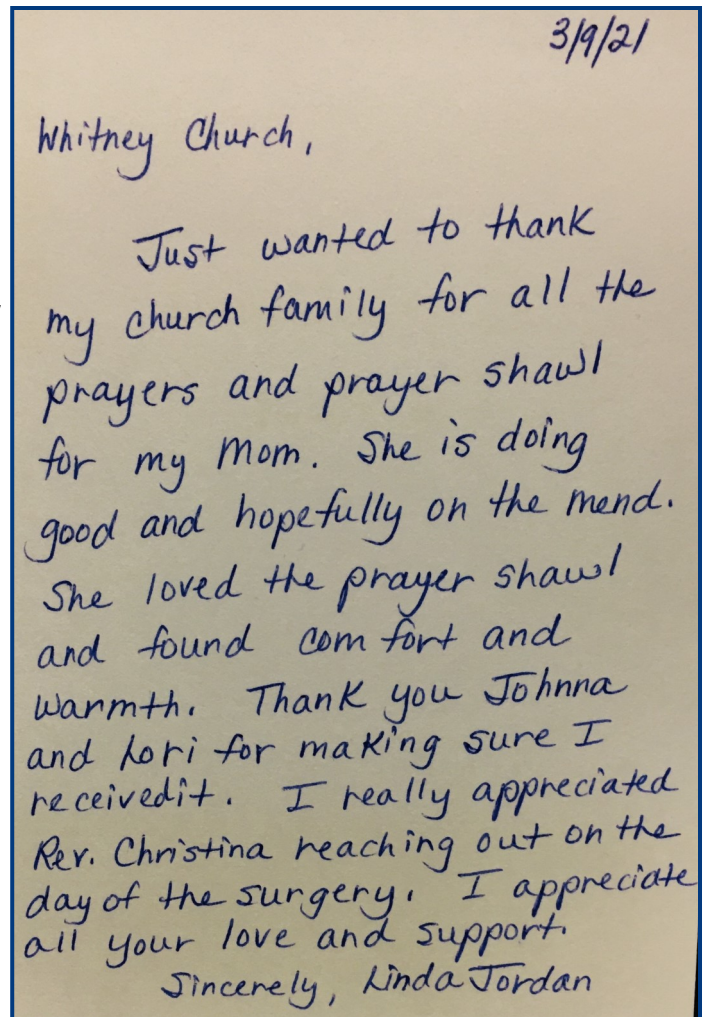 3/9/21
Whitney Church,
Just wanted to thank
my church family for all the
prayers and prayer shawl
for my Mom. She is doing
good and hopefully on the mend.
She loved the prayer shawl
and found comfort and
warmth. Thank you Johnna
and Lori for making sure I
receivedit. I really appreciated
Rev. Christina reaching out on the
day of the surgery. I appreciate
all your love and support.
Sincerely, Linda Jordan